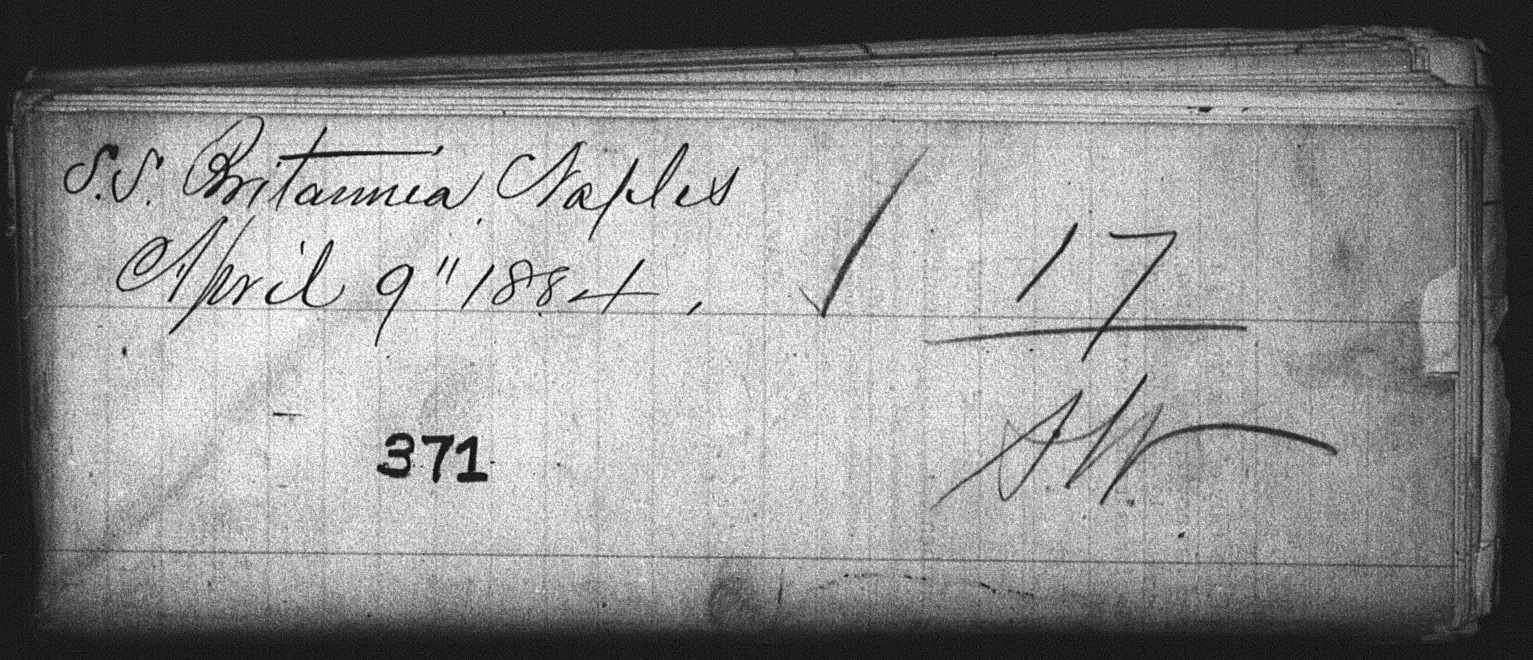 S.S. Britannia, Naples
April 9" 1884,
17
371